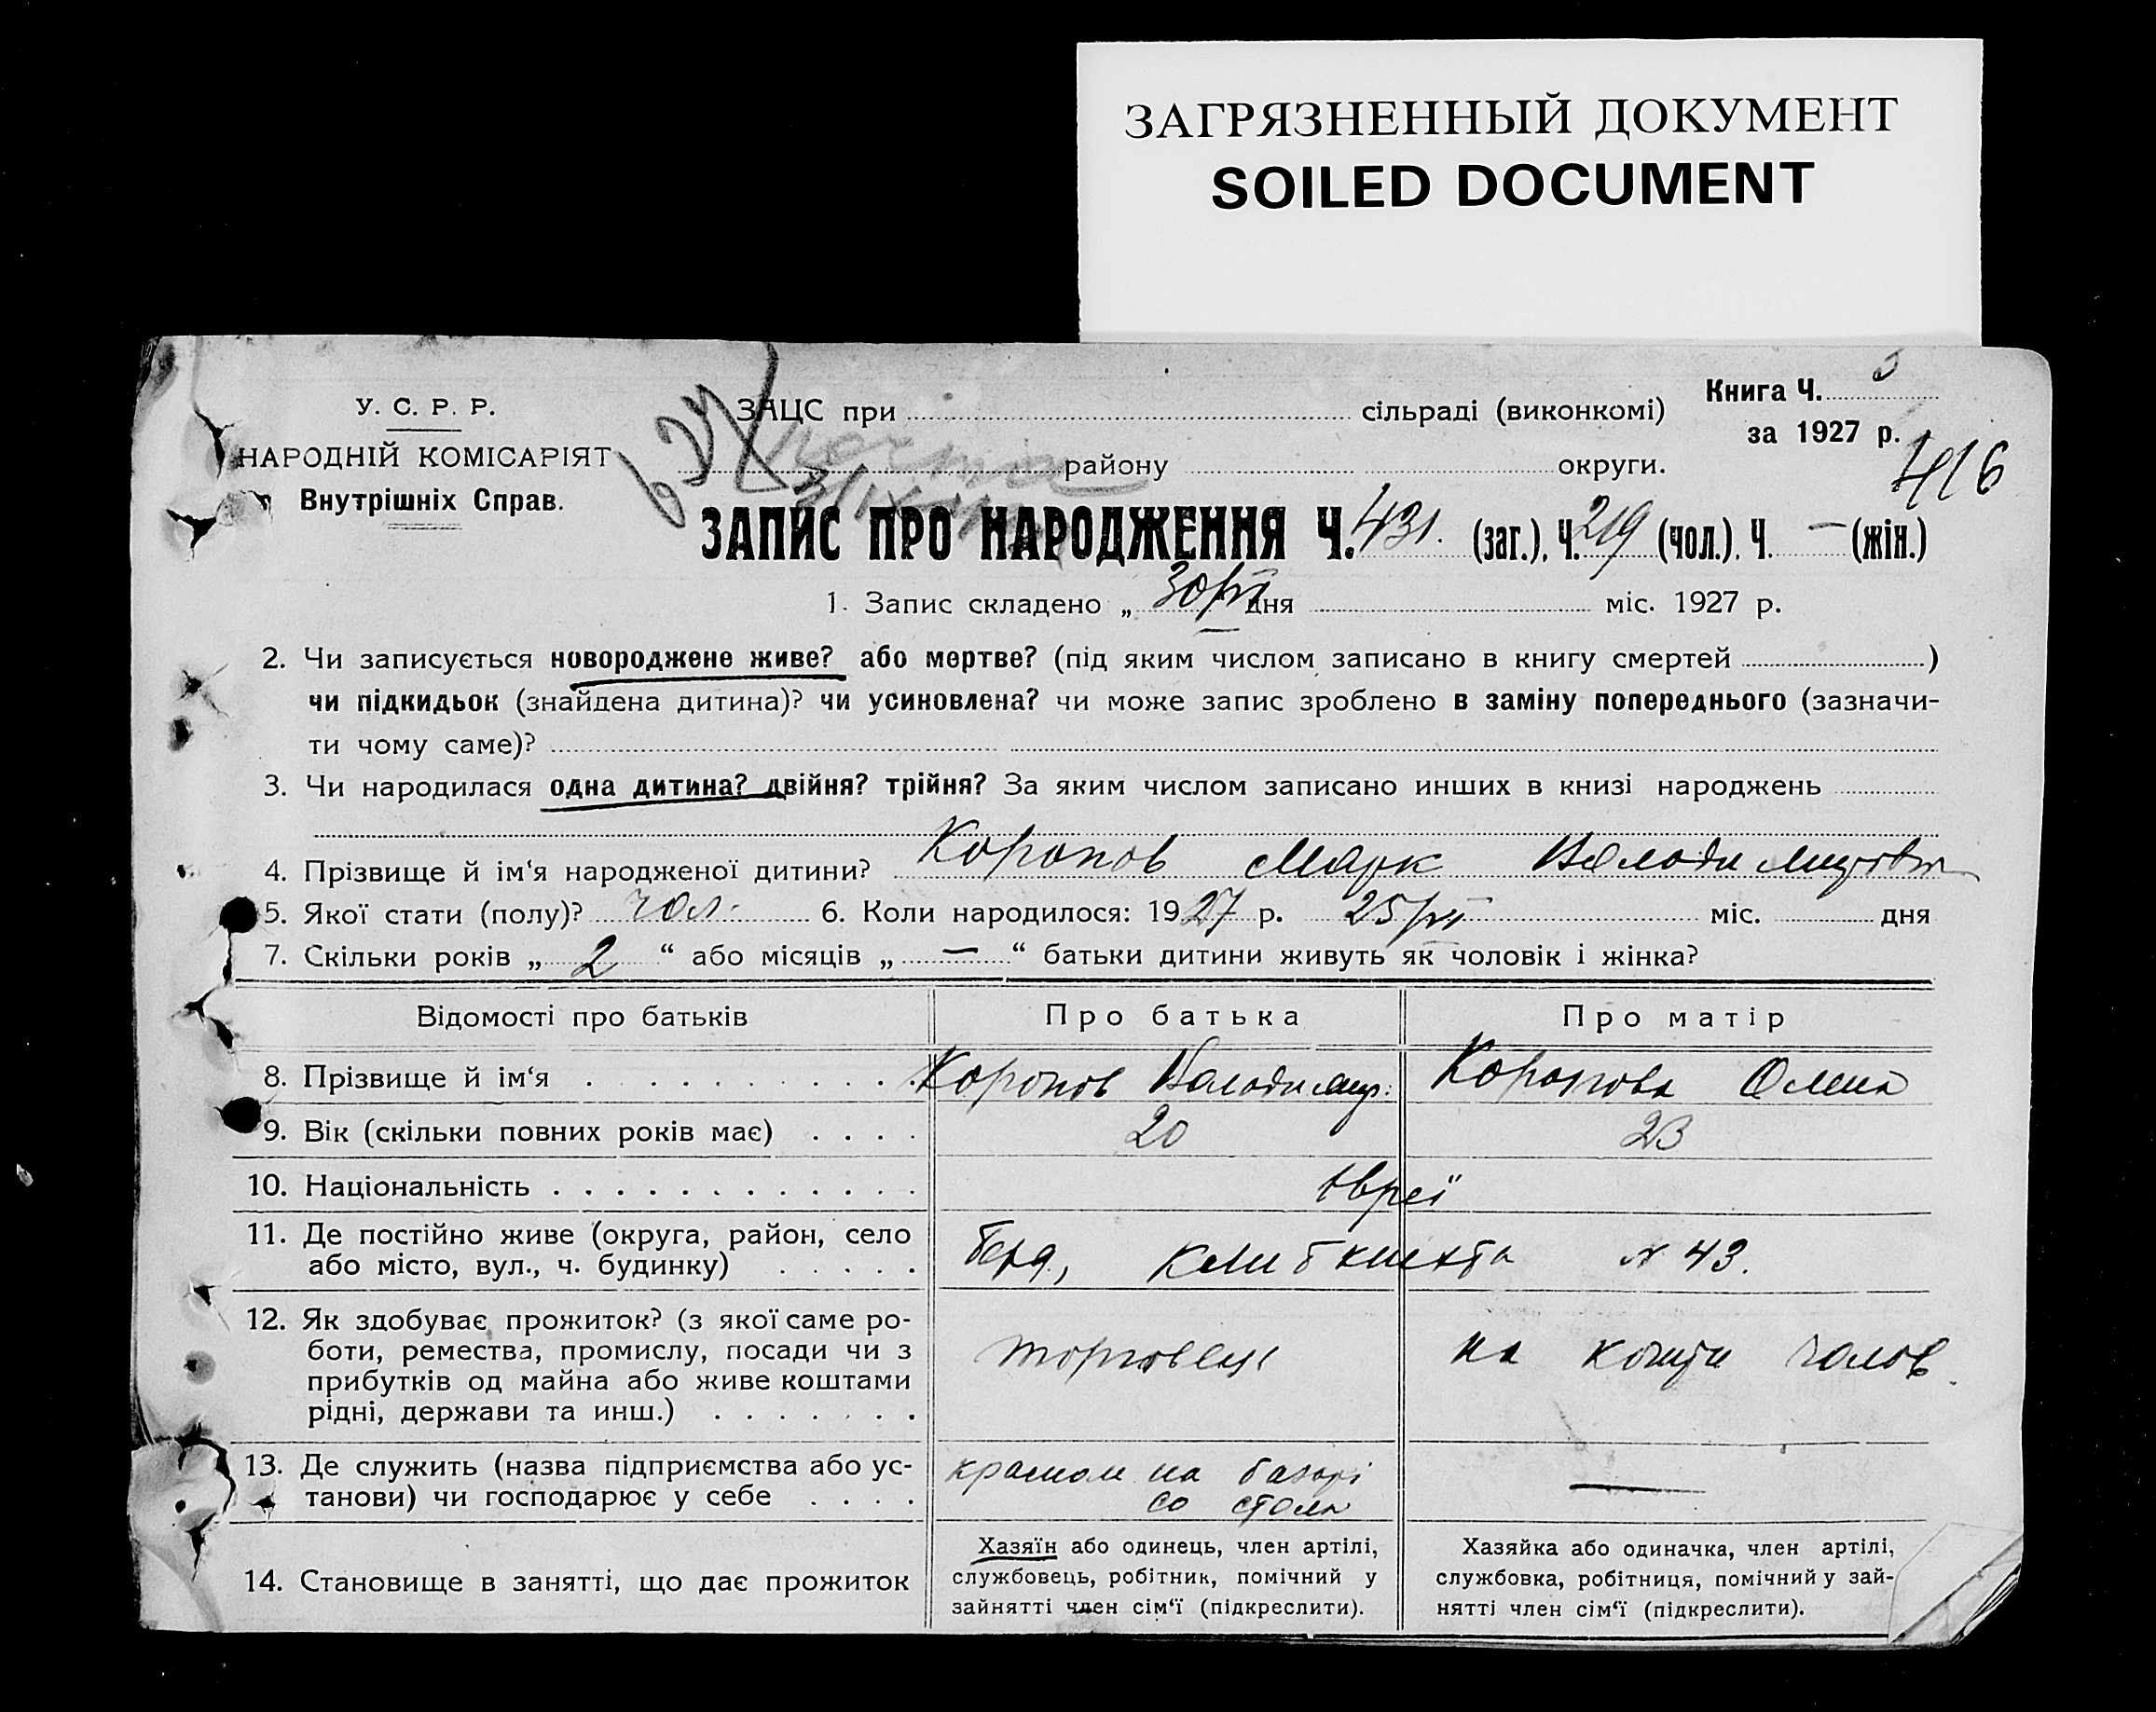 ЗАГРЯЗНЕННЫЙ ДОКУМЕНТ
SOILED DOCUMENT
У. С. Р. Р.
НАРОДНІЙ КОМІСАРІЯТ
Внутрішніх Справ.
ЗАЦС при сільраді (виконкомі)
Книга Ч.
за 1927 р.
району округи.
416
ЗАПИС ПРО НАРОДЖЕННЯ Ч. 431. (заг.), Ч. 219 (чол.), Ч. — (жін.)
1. Запис складено „ 30/VI дня міс. 1927 р.
2. Чи записується новороджене живе? або мертве? (під яким числом записано в книгу смертей )
чи підкидьок (знайдена дитина)? чи усиновлена? чи може запис зроблено в заміну попереднього (зазначи-
ти чому саме)?
3. Чи народилася одна дитина? двійня? трійня? За яким числом записано инших в книзі народжень
4. Прізвище й ім‘я народженої дитини? Коропов Марк
5. Якої стати (полу)? чол. 6. Коли народилося: 1927 р. 25/VI міс. дня
7. Скільки років „ 2 “ або місяців „ — “ батьки дитини живуть як чоловік і жінка?
Відомості про батьків Про батька Про матір
8. Прізвище й ім‘я Коропов Володимир. Коропова Олена
9. Вік (скільки повних років має) 20 23
10. Національність Євреї
11. Де постійно живе (округа, район, село
або місто, вул., ч. будинку) Берд, К Либкнехта № 43.
12. Як здобуває прожиток? (з якої саме ро-
боти, ремества, промислу, посади чи з
прибутків од майна або живе коштами
рідні, держави та инш.) торговець на кошти чолов.
13. Де служить (назва підприємства або ус-
танови) чи господарює у себе крамом на базарі
со стола —
14. Становище в занятті, що дає прожиток
Хазяїн або одинець, член артілі,
службовець, робітник, помічний у
зайнятті член сім‘ї (підкреслити).
Хазяйка або одиначка, член артілі,
службовка, робітниця, помічний у зай-
нятті член сім‘ї (підкреслити).